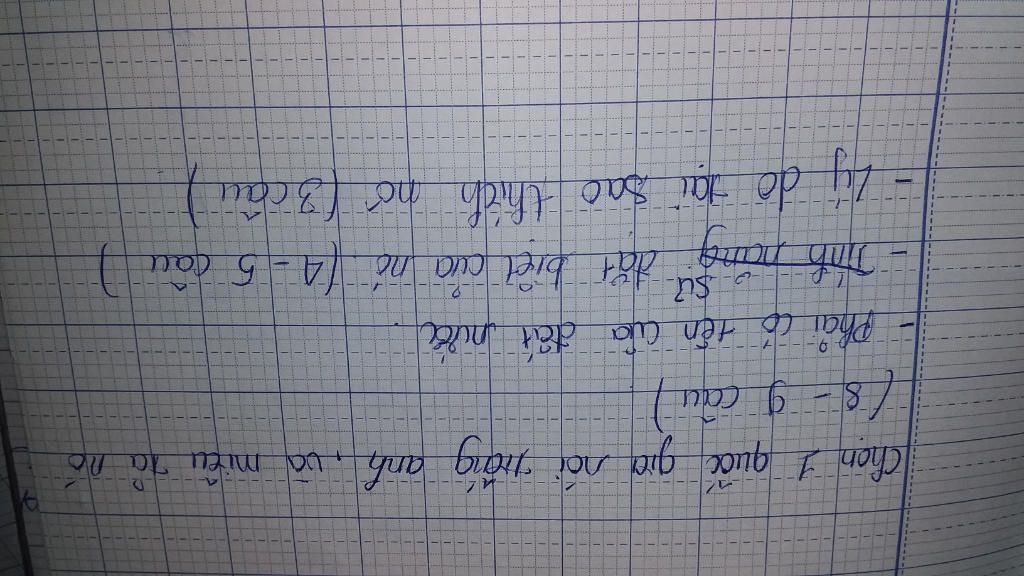 Chọn 1 quốc gia nói tiếng anh, và miêu tả nó
(8 - 9 câu)
- Phải có tên của đất nước.
- Tính năng sự đặt biệt của nó. (4 - 5 câu)
- Lý do tại sao thích nó (3 câu)